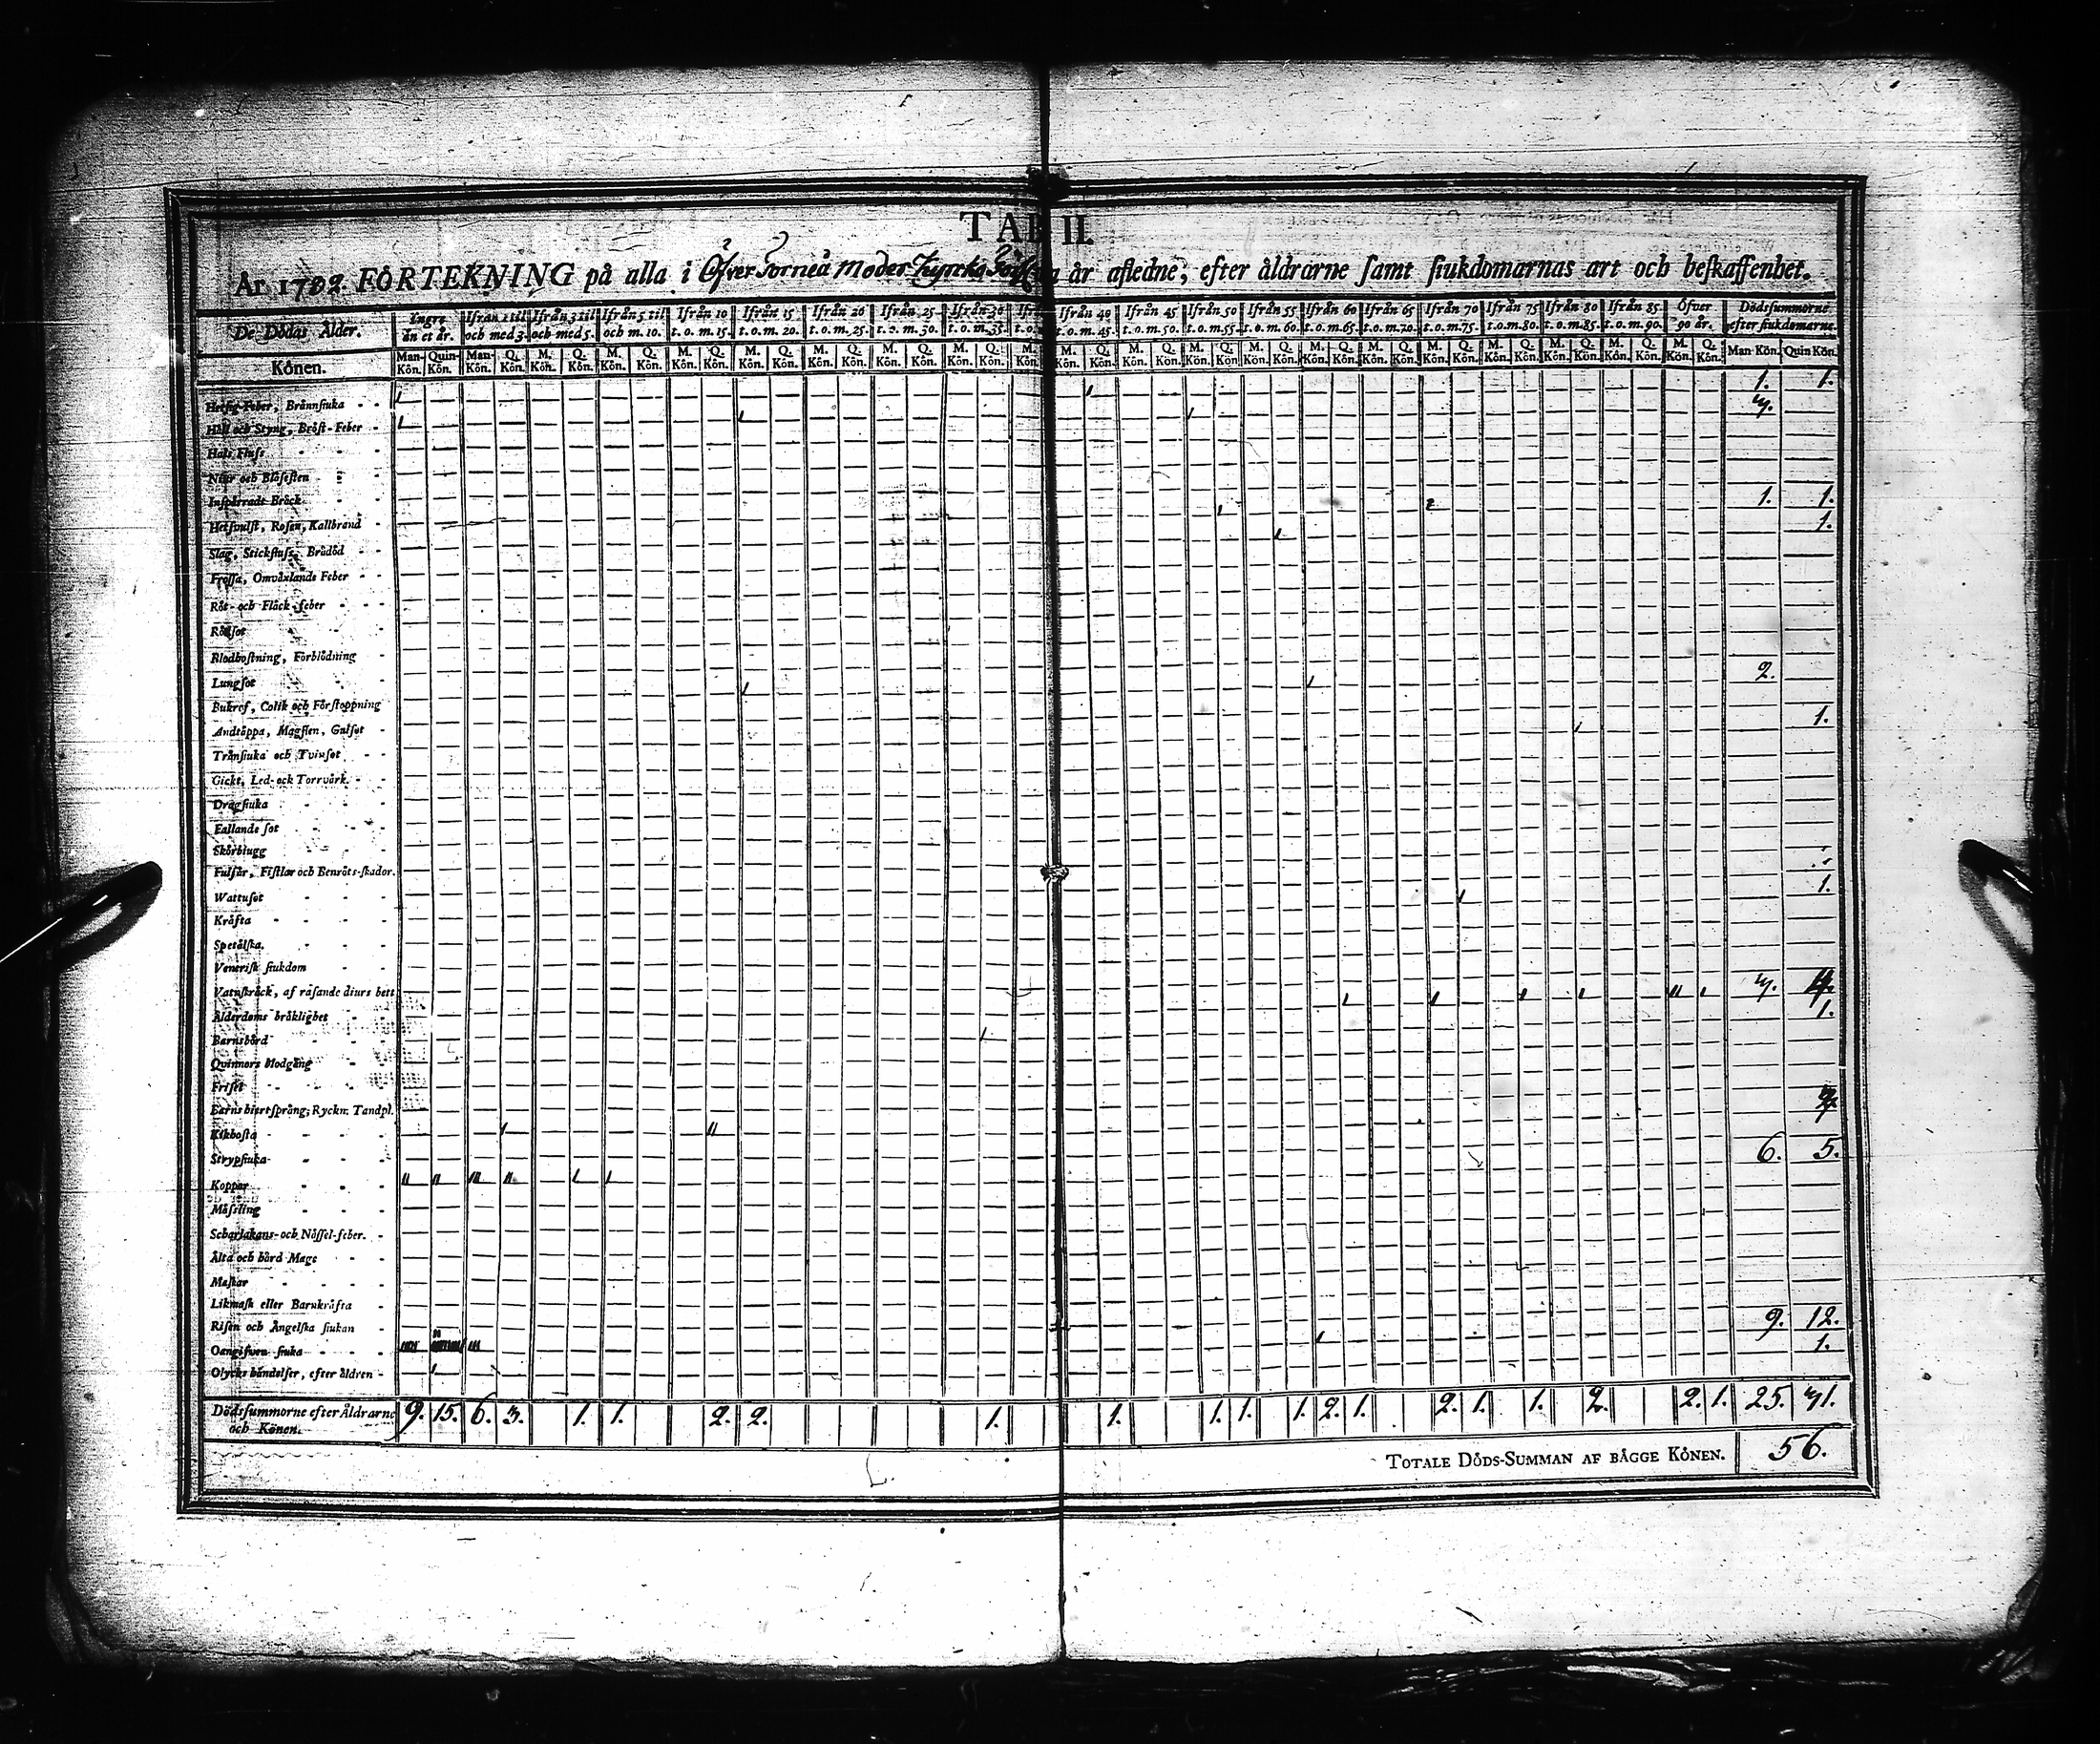 TAB II.
År 1782. FÖRTEKNING på alla i Öfver Torneå Moder Kyrcko år afledne, efter åldrarne samt siukdomarnas art och beskaffenhet.
De Dödas Ålder. Ingre än et år. Ifrån 1 til och med 3. Ifrån 3 til och med 5. Ifrån 5 til och m. 10. Ifrån 10 t.o.m. 15. Ifrån 15 t.o.m. 20. Ifrån 20 t.o.m. 25. Ifrån 25 t.o.m. 30. Ifrån 30 t.o.m. 35. Ifrån 40 t.o.m. 45. Ifrån 45 t.o.m. 50. Ifrån 50 t.o.m. 55. Ifrån 55 t.o.m. 60. Ifrån 60 t.o.m. 65. Ifrån 65 t.o.m. 70. Ifrån 70 t.o.m. 75. Ifrån 75 t.o.m. 80. Ifrån 80 t.o.m. 85. Ifrån 85 t.o.m. 90. Öfver 90 år. Dödssummorne efter siukdomarne.
Könen. Man-Kön. Quin-Kön. Man-Kön. Q. Kön. M. Kön. Q. Kön. M. Kön. Q. Kön. M. Kön. Q. Kön. M. Kön. Q. Kön. M. Kön. Q. Kön. M. Kön. Q. Kön. M. Kön. Q. Kön. M. Kön. M. Kön. Q. Kön. M. Kön. Q. Kön. M. Kön. Q. Kön. M. Kön. Q. Kön. M. Kön. Q. Kön. M. Kön. Q. Kön. M. Kön. Q. Kön. M. Kön. Q. Kön. M. Kön. Q. Kön. M. Kön. Q. Kön. M. Kön. Q. Kön. Man Kön. Quin Kön.
Hetsig-Feber, Brännsiuka 1. 1.
Håll och Styng, Bröst-Feber
Hals Fluss
Niur och Blåsesten
Inspärradt Bråck
Hetsvulst, Rosen, Kallbrand 1. 1.
Slag, Stickfluss, Brådöd 1.
Frossa, Omväxlande Feber
Röt- och Fläck-feber
Rödsot
Blodhostning, Förblödning
Lungsot 2.
Bukref, Colik och Förstoppning
Andtäppa, Magsien, Gulsot 1.
Trånsiuka och Tvinsot
Gickt, Led- och Torrvärk.
Dragsiuka
Fallande sot
Skörbiugg
Fulsår, Fistlar och Benröts-skador.
Wattusot 1.
Kräfta
Spetälska.
Venerisk siukdom
Vatuskräck, af rasande diurs bett
Ålderdoms bräklighet
Barnsbörd 1.
Quinnors blodgång
Friset
Barns hiertsprång; Ryckn. Tandpl.
Kikhosta
Strypsiuka
Koppor 6. 5.
Mässling
Scharlakans- och Nässel-feber.
Älta och hård Mage
Maskar
Likmask eller Barnkräfta
Risen och Ängelska siukan
Oangifven siuka 9. 12.
Olycks händelser, efter åldren 1.
Dödssummorne efter Åldrarne och Könen. 9. 15. 6. 3. 1. 1. 2. 2. 1. 1. 1. 1. 1. 2. 1. 2. 1. 1. 2. 2. 1. 25. 31.
TOTALE DÖDS-SUMMAN AF BÅGGE KÖNEN. 56.